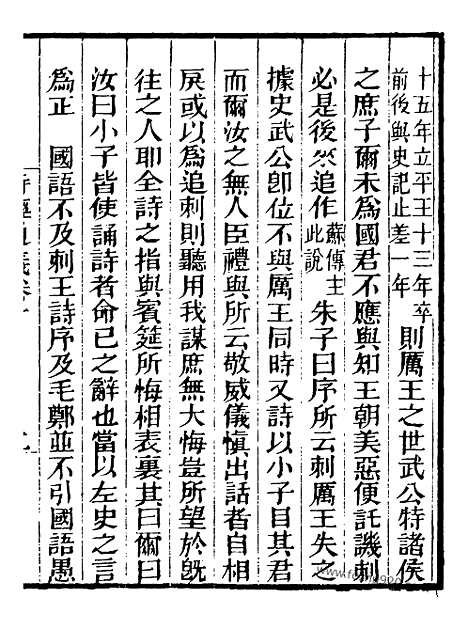 十五年立平王十三年卒
前後與史記止差一年
則厲王之世武公特諸侯
之庶子爾未爲國君不應與知王朝美惡便託譏刺
必是後來追作
蘇傳主
此說
朱子曰序所云刺厲王失之
據史武公卽位不與厲王同時又詩以小子目其君
而爾汝之無人臣禮與所云敬威儀愼出話者自相
戾或以爲追刺則聽用我謀庶無大悔豈所望於旣
往之人耶全詩之指與賓筵所悔相表裏其曰爾曰
汝曰小子皆使誦詩者命已之辭也當以左史之言
爲正　國語不及刺王詩序及毛鄭並不引國語愚